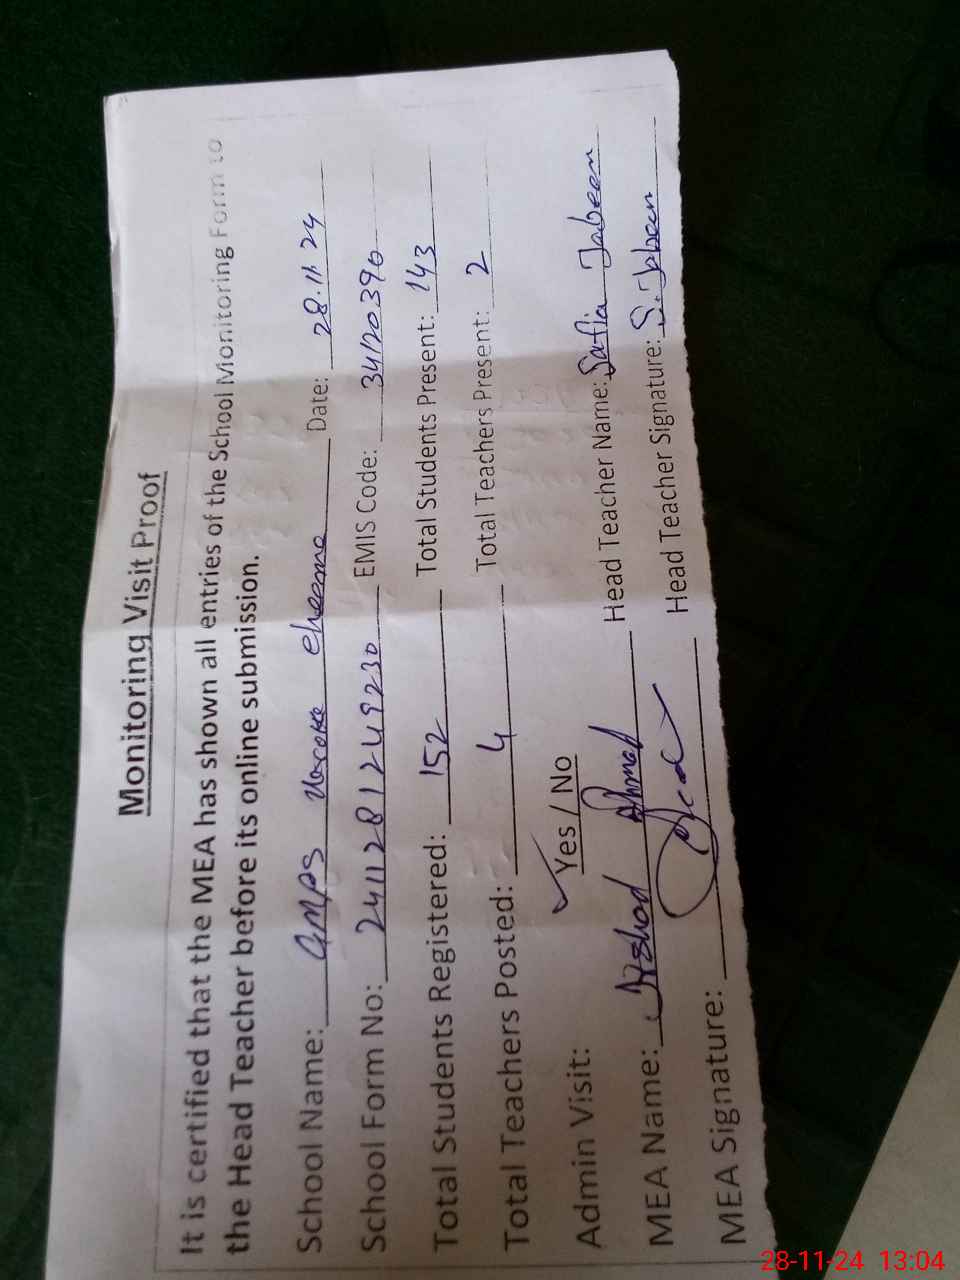 Monitoring Visit Proof
It is certified that the MEA has shown all entries of the School Monitoring Form to
the Head Teacher before its online submission.
School Name: GMPS Cheema Date: 28.11.24
School Form No: 2411281249230 EMIS Code: 34120396
Total Students Registered: 152 Total Students Present: 143
Total Teachers Posted: 4 Total Teachers Present: 2
Admin Visit: Yes / No
MEA Name: Irshad Ahmad Head Teacher Name: Safia Jabeen
MEA Signature: Head Teacher Signature: S. Jabeen
28-11-24 13:04